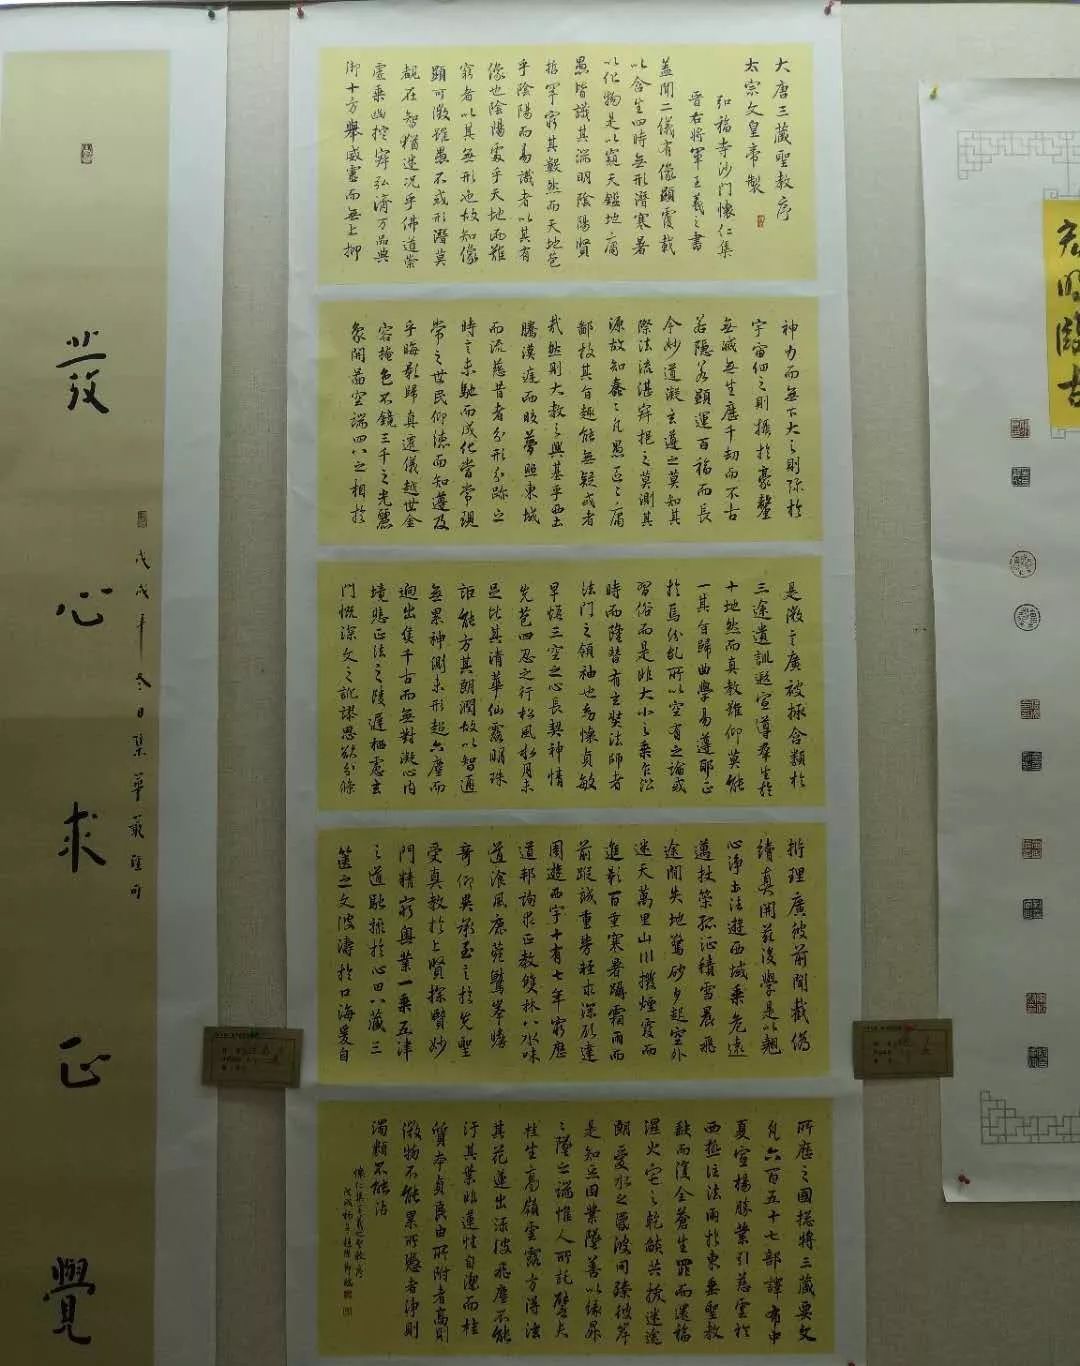 大唐三藏聖教序
太宗文皇帝製
弘福寺沙門懷仁集
晉右將軍王羲之書
蓋聞二儀有像顯覆載
以含生四時無形潛寒暑
以化物是以窺天鑑地庸
愚皆識其端明陰陽賢
哲罕窮其數然而天地苞
乎陰陽而易識者以其有
像也陰陽處乎天地而難
窮者以其無形也故知像
顯可徵雖愚不惑形潛莫
覩在智猶迷況乎佛道崇
虛乘幽控寂弘濟万品典
御十方舉威靈而無上抑
神力而無下大之則彌於
宇宙細之則攝於豪釐
無滅無生歷千劫而不古
若隱若顯運百福而長
今妙道凝玄遵之莫知其
際法流湛寂挹之莫測其
源故知蠢々凡愚區々庸
鄙投其旨趣能無疑或者
哉然則大教之興基乎西土
騰漢庭而皎夢照東域
而流慈昔者分形分跡之
時言未馳而成化當常現
常之世民仰德而知遵及
乎晦影歸真遷儀越世金
容掩色不鏡三千之光麗
象開圖空端四八之相於
是微言廣被拯含類於
三途遺訓遐宣導群生於
十地然而真教難仰莫能
一其旨歸曲學易遵耶正
於焉紛糺所以空有之論或
習俗而是非大小之乘乍沿
時而隆替有玄奘法師者
法門之領袖也幼懷貞敏
早悟三空之心長契神情
先苞四忍之行松風水月未
足比其清華仙露明珠
詎能方其朗潤故以智通
無累神測未形超六塵而
迥出隻千古而無對凝心內
境悲正法之陵遲栖慮玄
門慨深文之訛謬思欲分條
析理廣彼前聞截偽
續真開茲後學是以翹
心淨土法遊西域乘危遠
邁杖策孤征積雪晨飛
途間失地驚砂夕起空外
迷天萬里山川撥煙霞而
進影百重寒暑躡霜雨而
前蹤誠重勞輕求深願達
周遊西宇十有七年窮歷
道邦詢求正教雙林八水味
道飡風鹿菀鷲峯瞻
奇仰異承至言於先聖
受真教於上賢探賾妙
門精窮奧業一乘五律
之道馳驟於心田八藏三
篋之文波濤於口海爰自
所歷之國總將三藏要文
凡六百五十七部譯布中
夏宣揚勝業引慈雲於
西極注法雨於東垂聖教
缺而復全蒼生罪而還福
濕火宅之乾燄共拔迷途
朗愛水之昏波同臻彼岸
是知惡因業墜善以緣昇
々墜之端惟人所託譬夫
桂生高嶺雲露方得泫
其花蓮出淥波飛塵不能
汙其葉非蓮性自潔而桂
質本貞良由所附者高則
微物不能累所憑者淨則
濁類不能沾
懷仁集王羲之聖教序
戊戌
發心求正覺
戊戌年冬日集華嚴經句